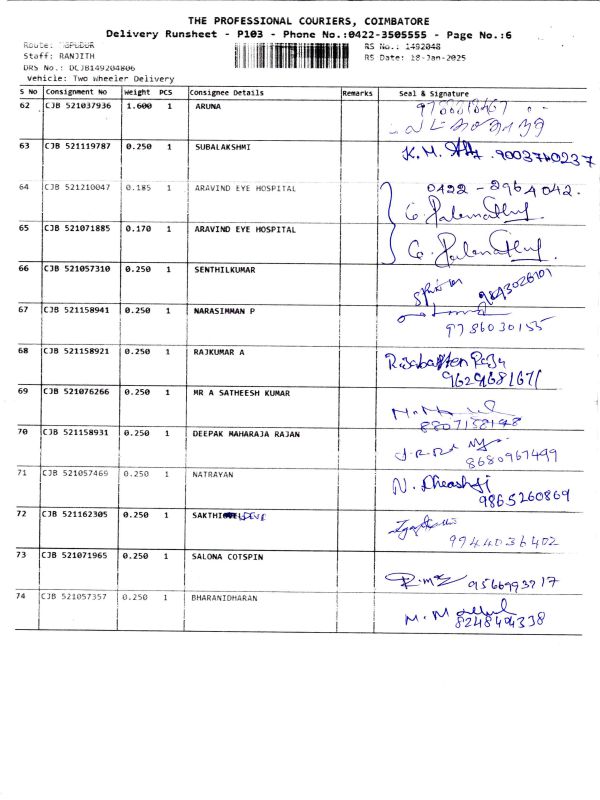 THE PROFESSIONAL COURIERS, COIMBATORE
Delivery Runsheet - P103 - Phone No.:0422-3505555 - Page No.:6
Route: RS No.: 1492048
Staff: RANJITH RS Date: 18-Jan-2025
DRS No.: DCJB149204806
Vehicle: Two Wheeler Delivery
S No Consignment No Weight PCS Consignee Details Remarks Seal & Signature
62 CJB 521037936 1.600 1 ARUNA
63 CJB 521119787 0.250 1 SUBALAKSHMI K.M. 9003740237
64 CJB 521210047 0.185 1 ARAVIND EYE HOSPITAL 0422-2964042.
65 CJB 521071885 0.170 1 ARAVIND EYE HOSPITAL
66 CJB 521057310 0.250 1 SENTHILKUMAR 9843026101
67 CJB 521158941 0.250 1 NARASIMMAN P 9786030155
68 CJB 521158921 0.250 1 RAJKUMAR A
9629168167/
69 CJB 521076266 0.250 1 MR A SATHEESH KUMAR
8807158198
70 CJB 521158931 0.250 1 DEEPAK MAHARAJA RAJAN
8680967499
71 CJB 521057469 0.250 1 NATRAYAN N.
9865260869
72 CJB 521162305 0.250 1
9944036402
73 CJB 521071965 0.250 1 SALONA COTSPIN
9566993717
74 CJB 521057357 0.250 1 BHARANIDHARAN M. M
8248404338